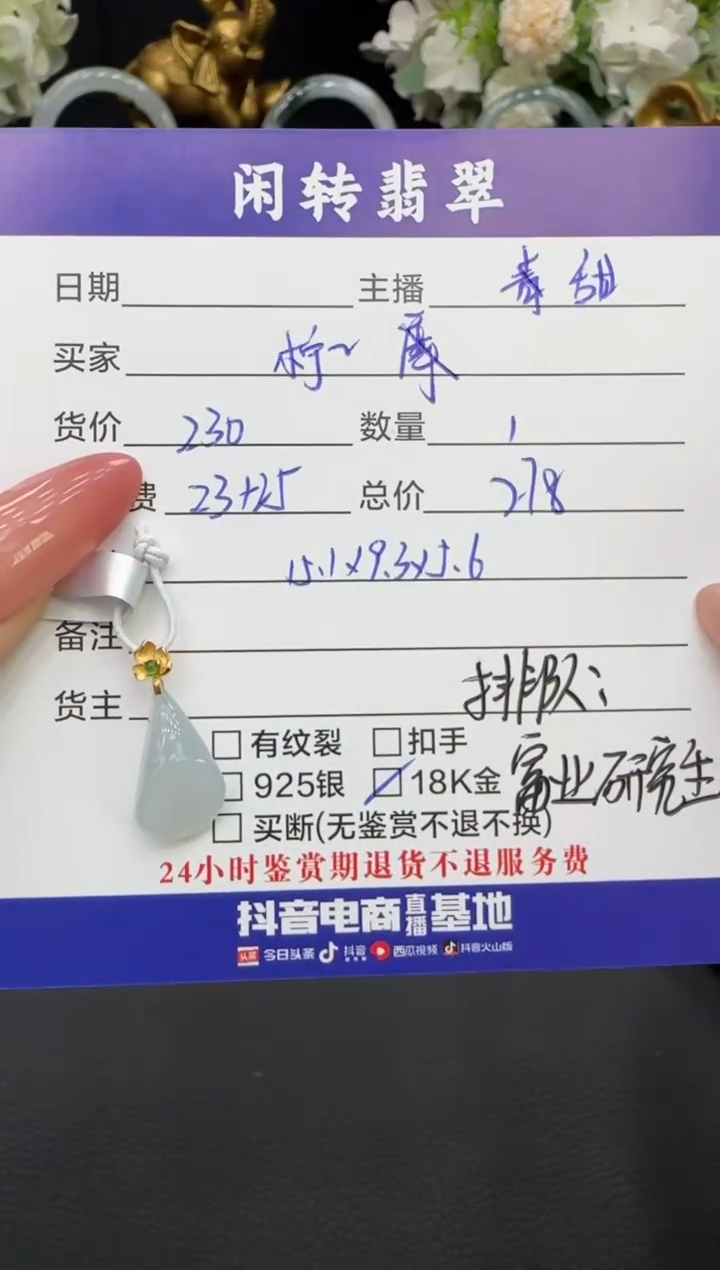 闲转翡翠
日期 主播 青甜
买家 柠~
货价 230 数量 1
费 23+25 总价 278
15.1x9.3x5.6
备注
货主 排队:
有纹裂 扣手
925银 18K金 富业研究生
买断(无鉴赏不退不换)
24小时鉴赏期退货不退服务费
抖音电商直播基地
头条 今日头条 抖音 西瓜视频 抖音火山版